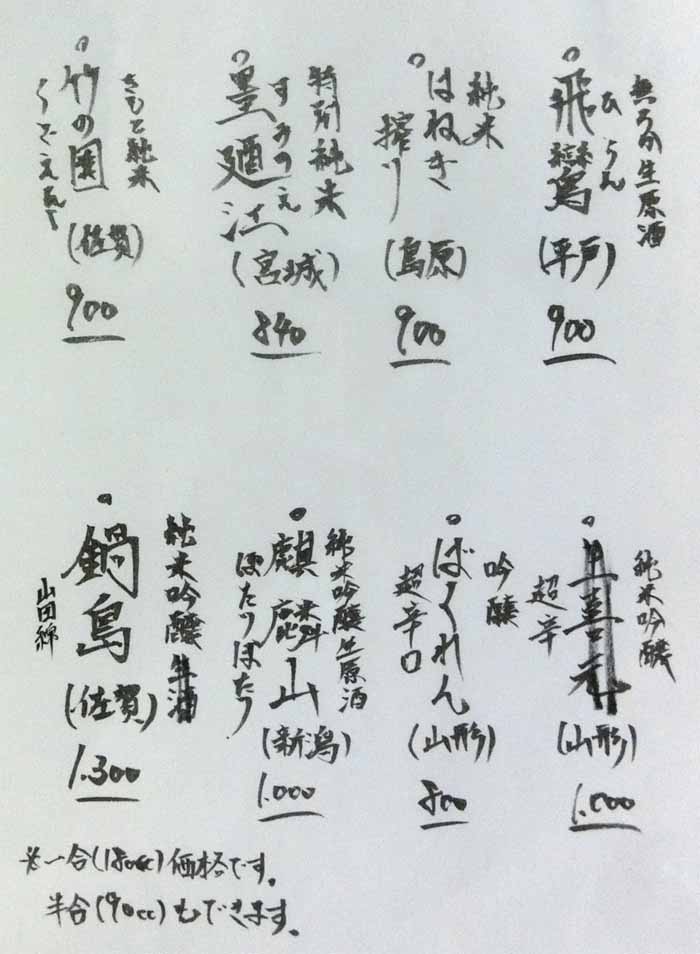 無ろか生原酒
ひらん
飛鸞
(平戸)
900
純米
はねき
搾り
(島原)
900
特別純米
すみのえ
墨廼江
(宮城)
840
きもと純米
竹の園
(佐賀)
900
純米吟醸
上喜元
超辛
(山形)
1.000
吟醸
ばくれん
超辛口
(山形)
800
純米吟醸生原酒
麒麟山
ぽたりぽたり
(新潟)
1.000
純米吟醸生酒
鍋島
山田錦
(佐賀)
1.300
※一合(180cc)価格です。
半合(90cc)もできます。